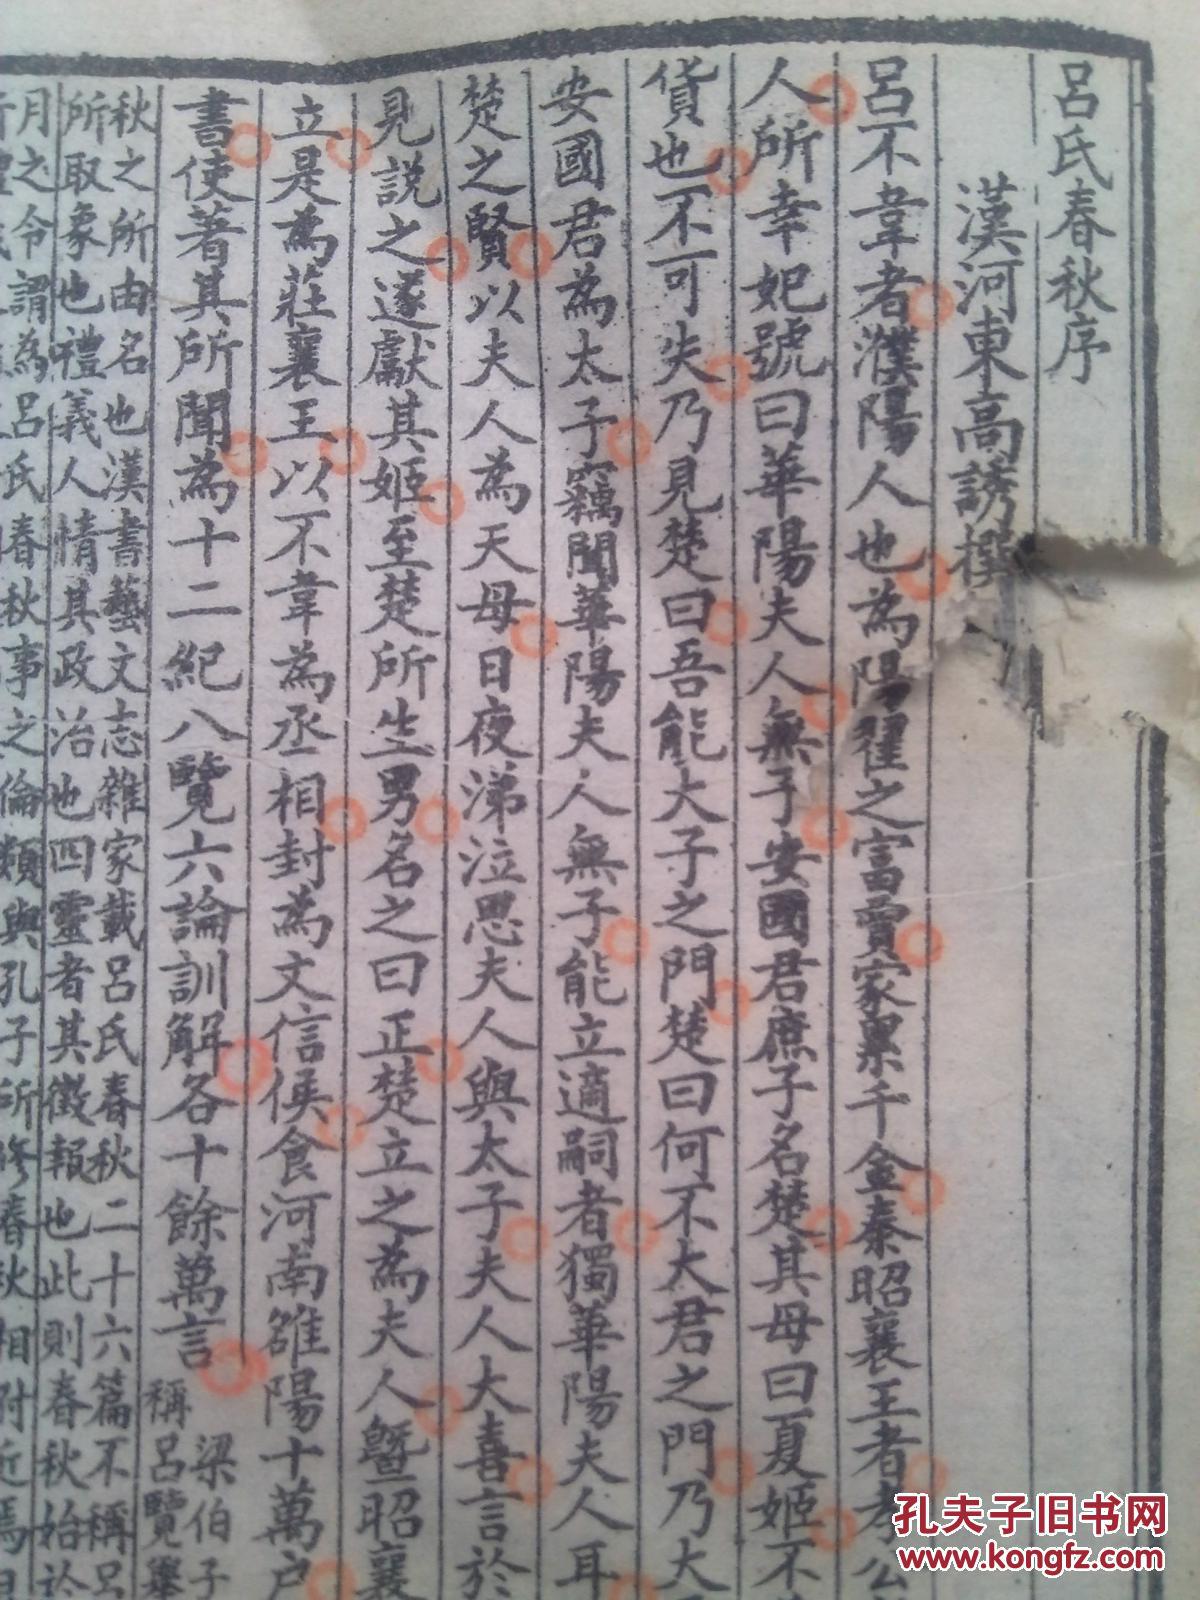 呂氏春秋序
漢河東高誘撰
呂不韋者濮陽人也為陽翟之富賈家累千金秦昭襄王者孝公
人所幸妃號曰華陽夫人無子安國君庶子名楚其母曰夏姬不
貨也不可失乃見楚曰吾能大子之門楚曰何不大君之門乃大
安國君為太子竊聞華陽夫人無子能立適嗣者獨華陽夫人耳
楚之賢以夫人為天母日夜涕泣思夫人與太子夫人大喜言於
見說之遂獻其姬至楚所生男名之曰正楚立之為夫人暨昭襄
立是為莊襄王以不韋為丞相封為文信侯食河南雒陽十萬户
書使著其所聞為十二紀八覽六論訓解各十餘萬言
梁伯子
稱呂覽舉
秋之所由名也漢書藝文志雜家載呂氏春秋二十六篇不稱呂
所取象也禮義人情其政治也四靈者其徵報也此則春秋始於
月之令謂為呂氏春秋事之倫類與孔子所修春秋相附近焉
孔夫子旧书网
www.kongfz.com